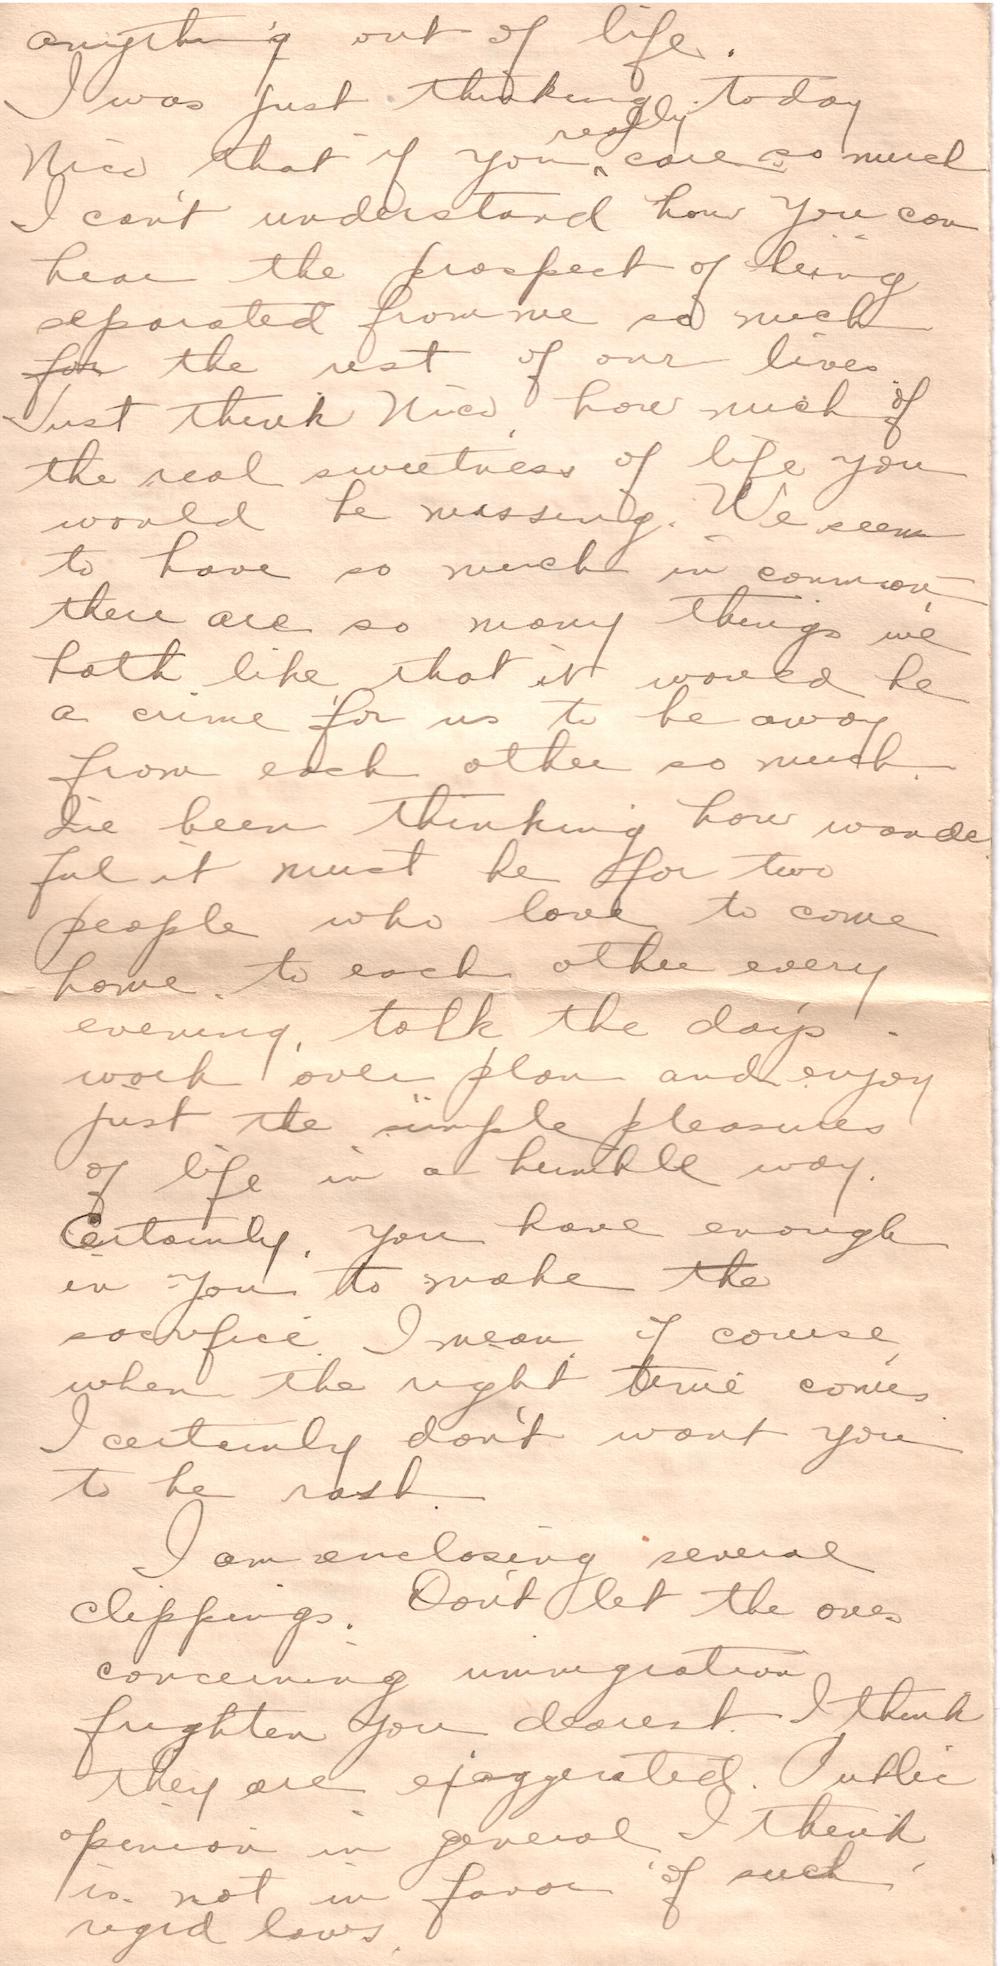 anything out of life.
I was just thinking today
really
Nico that if you ^ care so much
I can't understand how you can
bear the prospect of being
separated from me so much
for the rest of our lives
Just think Nico, how much of
the real sweetness of life you
would be missing. We seem
to have so much in common,
there are so many things we
both like, that it would be
a crime for us to be away
from each other so much.
I've been thinking how wonde
ful it must be for two
people who love, to come
home to each other every
evening, talk the day's
work over plan and enjoy
just the simple pleasures
of life in a humble way.
Certainly, you have enough
in you to make the
sacrifice. I mean, of course,
when the right time comes
I certainly don't want you
to be rash.
I am enclosing several
clippings. Don't let the ones
concerning immigration
frighten you dearest. I think
they are exaggerated. Public
opinion in general I think
is not in favor of such
rigid laws.